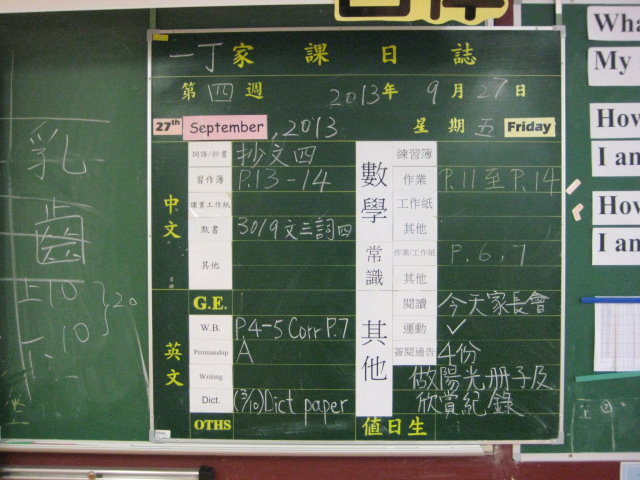 一丁家課日誌
第四週 2013年9月27日
27th September, 2013 星期五 Friday
中文
詞語/抄書 抄文四
習作簿 P.13-14
課業工作紙
默書 30/9文三詞四
其他
數學
練習簿
作業 P.11至P.14
工作紙
其他
常識
作業/工作紙 P.6,7
其他
英文
G.E.
W.B. P4-5 Corr P.7
Penmanship A
Writing
Dict. (3/10)Dict paper
OTHS
其他
閱讀 今天家長會
運動 ✓
簽閱通告 4份
做陽光册子及
欣賞紀錄
值日生
乳
齒
上10
下10
20
My
How
I am
How
I am